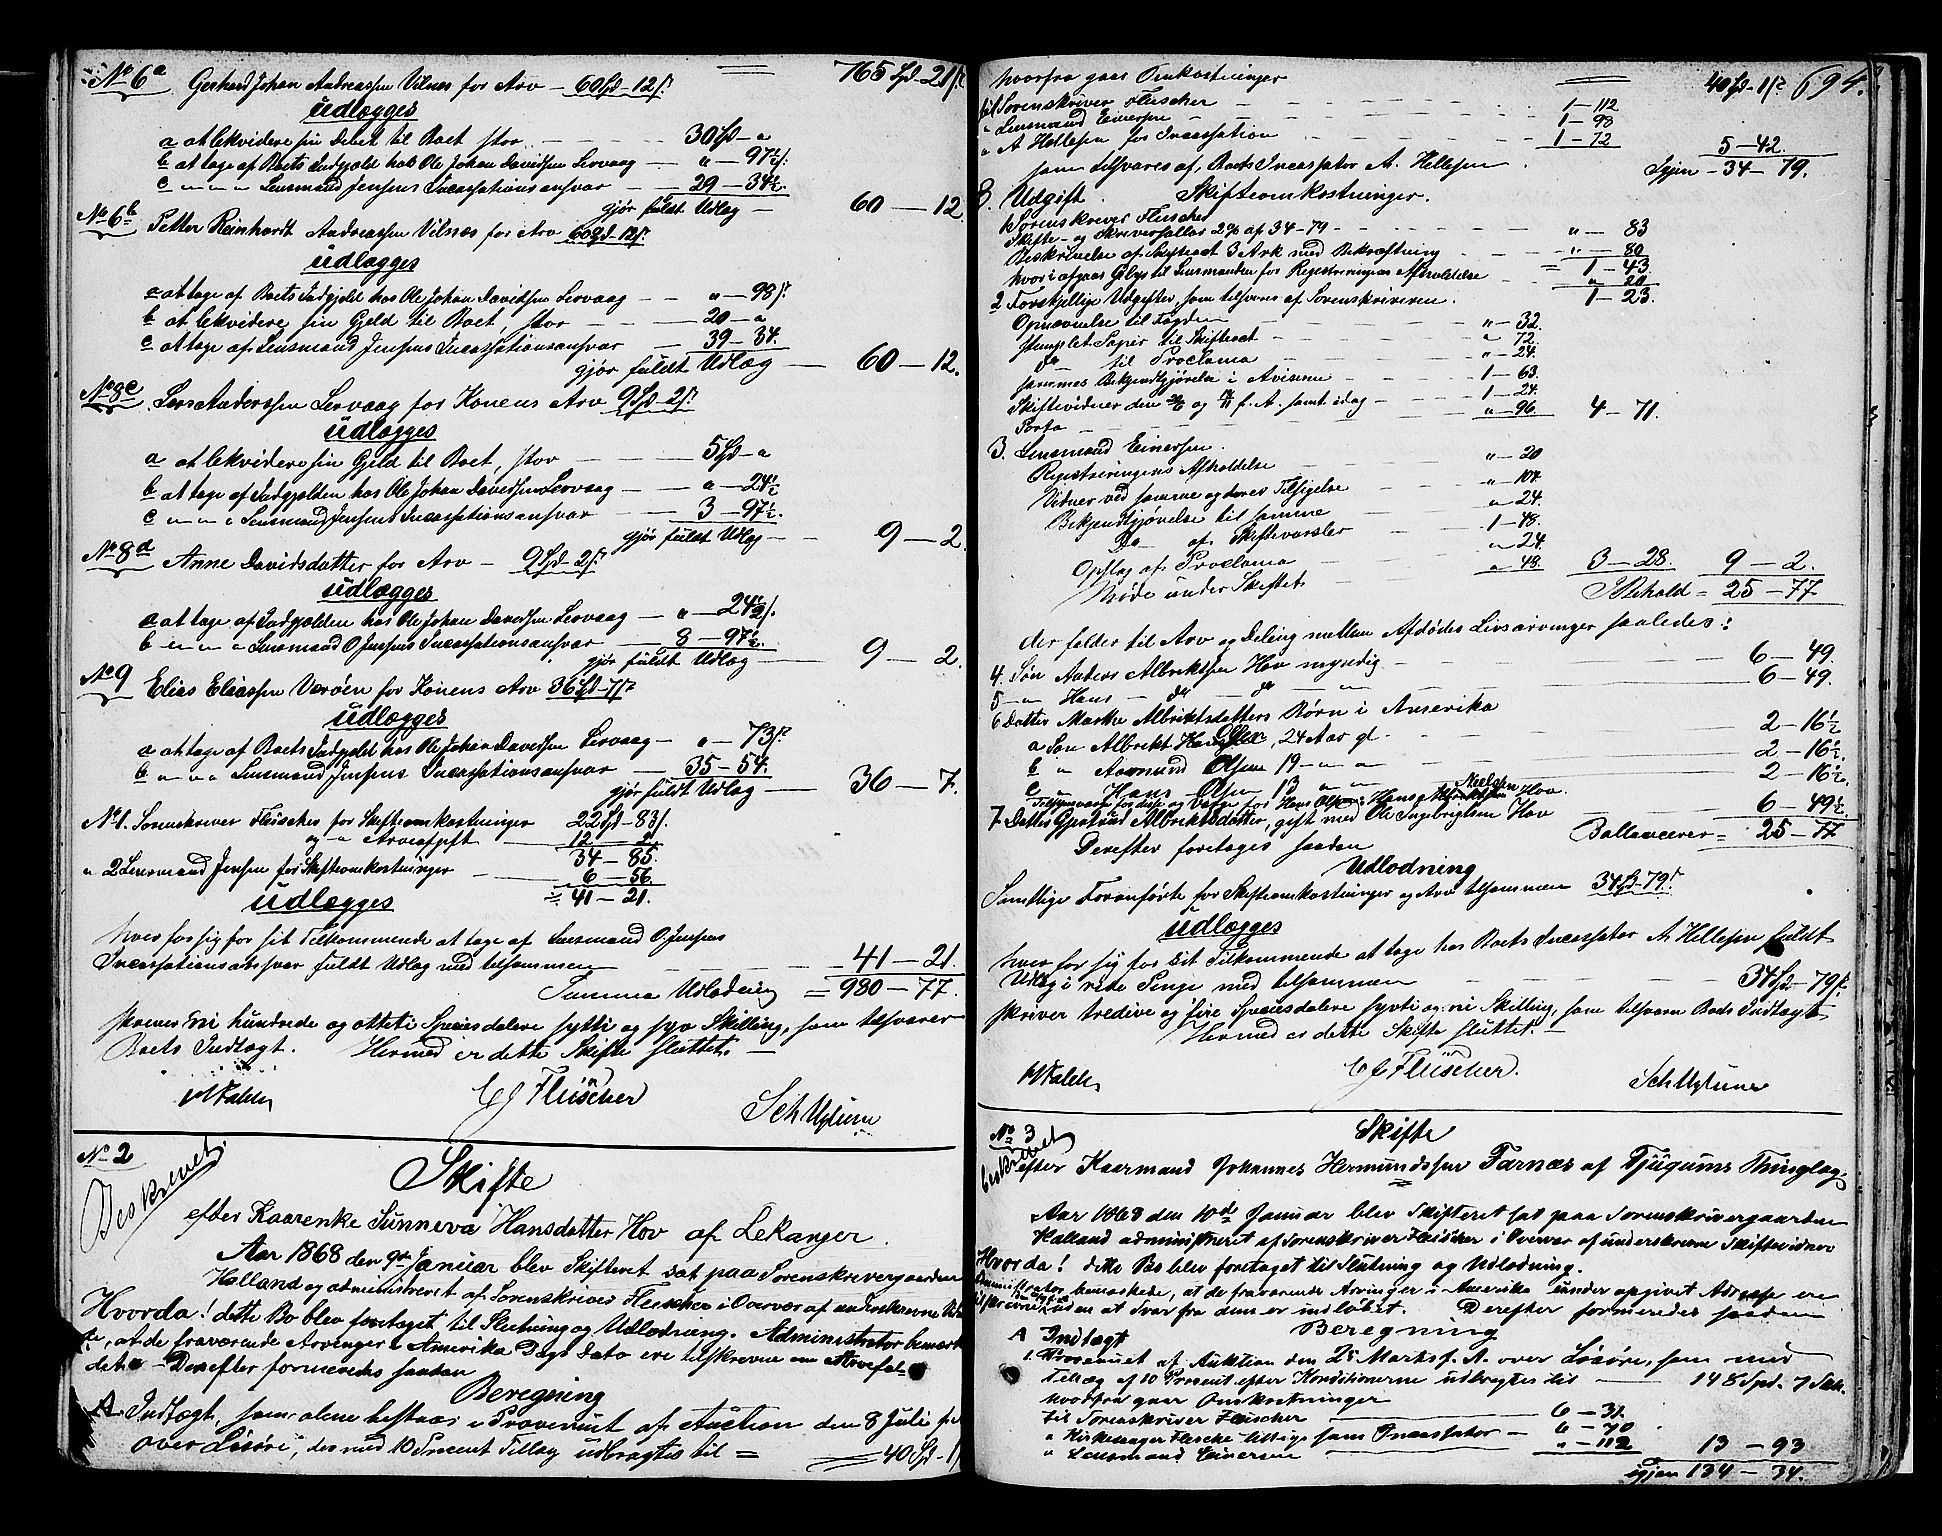 No 6a Gerhard Johan Andreassen Vilnes for Arv — 60Spd-12s. 765Spd-21s
udlægges
a at lekvidere sin Debet til Boet, stor 30Spd-"
b at tage af Boets Indgjeld hos Ole Johan Davidsen Lervaag — " — 97½s.
c " " " Lensmand Jensens Incassationsansvar — 29 — 34½.
gjør fuldt Udlæg — 60 — 12
No 6b Petter Reinhardt Andreassen Vilnæs for Arv 60Spd-12s.
udlægges
a at tage af Boets Indgjeld hos Ole Johan Davidsen Lervaag — " — 98s.
b at lekvidere sin Gjeld til Boet, stor — 20 — "
c at tage af Lensmand Jensens Incassationsansvar — 39 — 34.
gjør fuldt Udlæg — 60 — 12.
No 8c Lars Anderssen Lervaag for Konens Arv 9Spd-2s.
udlægges
a at lekvidere sin Gjeld til Boet, stor — 5Spd-"
b at tage af Indgjelden hos Ole Johan Davidsen Lervaag — " — 24½
c " " " Lensmand Jensens Incassationsansvar — 3 — 97½.
gjør fuldt Udlæg — 9 — 2.
No 8d Anne Davidsdatter for Arv — 9Spd-2s.
udlægges
a at tage af Indgjelden hos Ole Johan Davidsen Lervaag — " — 24½s.
b " " " Lensmand O Jensens Incassationsansvar — 8 — 97½.
gjør fuldt Udlæg — 9 — 2.
No 9 Elias Eliassen Værøen for Konens Arv 36Spd-7s
udlægges
a at tage af Boets Indgjeld hos Ole Johan Davidsen Lervaag — " — 73s
b " " " Lensmand Jensens Incassationsansvar — 35 — 54.
gjør fuldt Udlæg — 36 — 7.
No 1. Sorenskriver Fleischer for Skifteomkostninger 22Spd-83s.
og " Arveafgift — 12 — 2.
34 — 85.
" 2 Lensmand Jensen for Skifteomkostninger — 6 — 56.
udlægges = 41 — 21.
hver for sig for sit Tilkommende at tage af Lensmand O Jensens
Incassationsansvar fuldt Udlæg med tilsammen — 41 — 21.
Summa Udlodning = 980 — 77.
skriver Ni hundrede og otteti Speciesdalere sytti og syv Skilling, som tilsvarer
Boets Indtægt. Hermed er dette Skifte sluttet. —
CJ Fleischer
No 2
Beskrevet.
Skifte
efter Kaarenke Sunneva Hansdatter Hov af Lekanger.
Aar 1868 den 9de Januar blev Skifteret sat paa Sorenskrivergaarden
Halland og administreret af Sorenskriver Fleischer i Overvær af underskrevne
Hvorda! dette Bo blev foretaget til Slutning og Udlodning. Administrator bemærk
te, at de fraværende Arvinger i Amerika Dags Dato ere tilskrevne om Arvefal-
det. — Derefter formeredes saadan
Beregning
A. Indtægt, som alene bestaar i Provenuet af Auction den 8 Juli f.A.
over Løsøre, der med 10 Procent Tillæg udbragtes til = 40Spd-1s
hvorfra gaar Omkostninger 40Spd-1s 694.
til Sorenskriver Fleischer — 1 — 112
" Lensmand Einersen — 1 — 98
" A Hellesen for Incassation — 1 — 72 5 — 42.
som tilsvares af Boets Incassator A. Hellesen. Igjen — 34 — 79.
B. Udgift. Skifteomkostninger.
1 Sorenskriver Fleischer
Skifte- og Skriversallar 2% af 34-79 — " — 83
Beskrivelse af Skifteact 3 Ark med Bekræftning — " — 80
= 1 — 43.
hvori afgaar Gebyr til Lensmanden for Registreringens Afholdelse — " 20
1 — 23.
2 Forskjellige Udgifter, som tilsvares af Sorenskriveren.
Opnævnelse til Fogden — " — 32.
stemplet Papir til Skifteact — " 72.
do til Proclama — " — 24.
sammes Bekjendtgjørelse i Aviserne — 1 — 63.
Skiftevidner den og f. A. samt idag — 1 — 24.
Porto — " — 96. 4 — 71.
3. Lensmand Einersen.
Registreringens Afholdelse — " — 20
Vidner ved samme og deres Tilsigelse — " — 104
Bekjendtgjørelse til samme — " 24.
Do af Skiftevarsler — 1 — 48.
Opslag af Proclama — " 24.
Møde under Skiftet — " 48. 3 — 28. 9 — 2.
I Behold = 25 — 77
der falder til Arv og Deling mellem Afdødes Livsarvinger saaledes:
4. Søn Anders Albrektsen Hov myndig — 6 — 49.
5 — " Hans — do — do — " — 6 — 49.
6 Datter Marthe Albriktsdatters Børn i Amerika
a Søn Albrekt Olsen, 24 Aar gl. — 2 — 16½
b " Aamund Olsen 19 — " — " 2 — 16½
c " Hans Olsen 13 " " 2 — 16½
Tilsynsværge for disse og Værge for Hans Olsen: Hans Nielssen Hov.
7. Datter Gjertrud Albriktsdatter, gift med Ole Ingebrigtsen Hov 6 — 49½
Derefter foretoges saadan Ballancerer = 25 — 77
Udlodning
Samtlige Foranførte for Skifteomkostninger og Arv tilsammen 34Spd-79s
udlægges
hver for sig for sit Tilkommende at tage hos Boets Incassator A Hellesen fuldt
Udlæg i rede Penge med tilsammen — 34Spd-79s.
skriver tredive og fire Speciesdalere sytti og ni Skilling, som tilsvarer Boets Indtægt.
Hermed er dette Skifte sluttet. —
CJ Fleischer.
No 3
beskrevet
Skifte
efter Kaarmand Johannes Hermundssen Farnæs af Tjugums Thinglag.
Aar 1868 den 10de Januar blev Skifteret sat paa Sorenskrivergaarden
Halland administreret af Sorenskriver Fleischer i Overvær af underskrevne Skiftevidner
Hvorda! dette Bo blev foretaget til Slutning og Udlodning.
Administrator bemærkede, at de fraværende Arvinger i Amerika under opgivet Adresse ere
tilskrevne uden at Svar fra dem er indløbet. Derefter formeredes saadan
Beregning
A Indtægt
1. Provenuet af Auktion den 2de Marts f. A. over Løsøre, som med
Tillæg af 10 Procent efter Konditionerne udbragtes til — 148 Spd. 7 Sk.
hvorfra gaar Omkostninger
til Sorenskriver Fleischer — 6 — 31.
" Kirkesanger Flesche tillige som Incassator — 6 — 70
" Lensmand Einersen — " — 112 13 — 93
igjen 134 — 34.